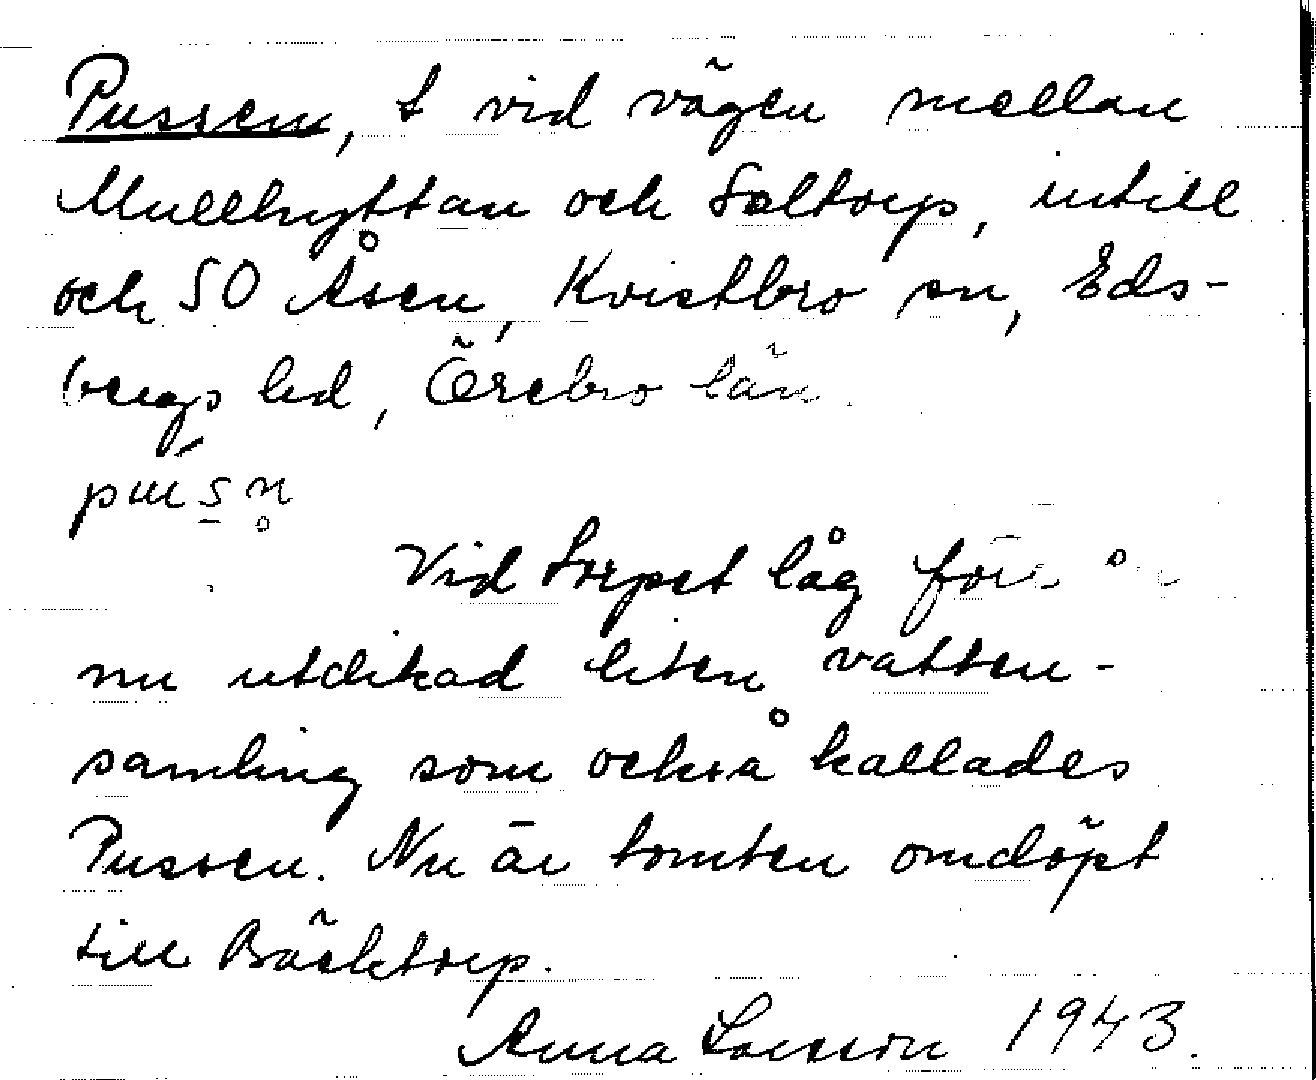 Pussen, t vid vägen mellan
Mullhyttan och Saltorp, intill
och SO Åsen, Kvistbro sn, Eds-
bergs hd, Örebro län.
Vid torpet låg förr en
nu utdikad liten vatten-
samling som också kallades
Pussen. Nu är tomten omdöpt
till Bäcktorp.
Anna Larsson 1943.